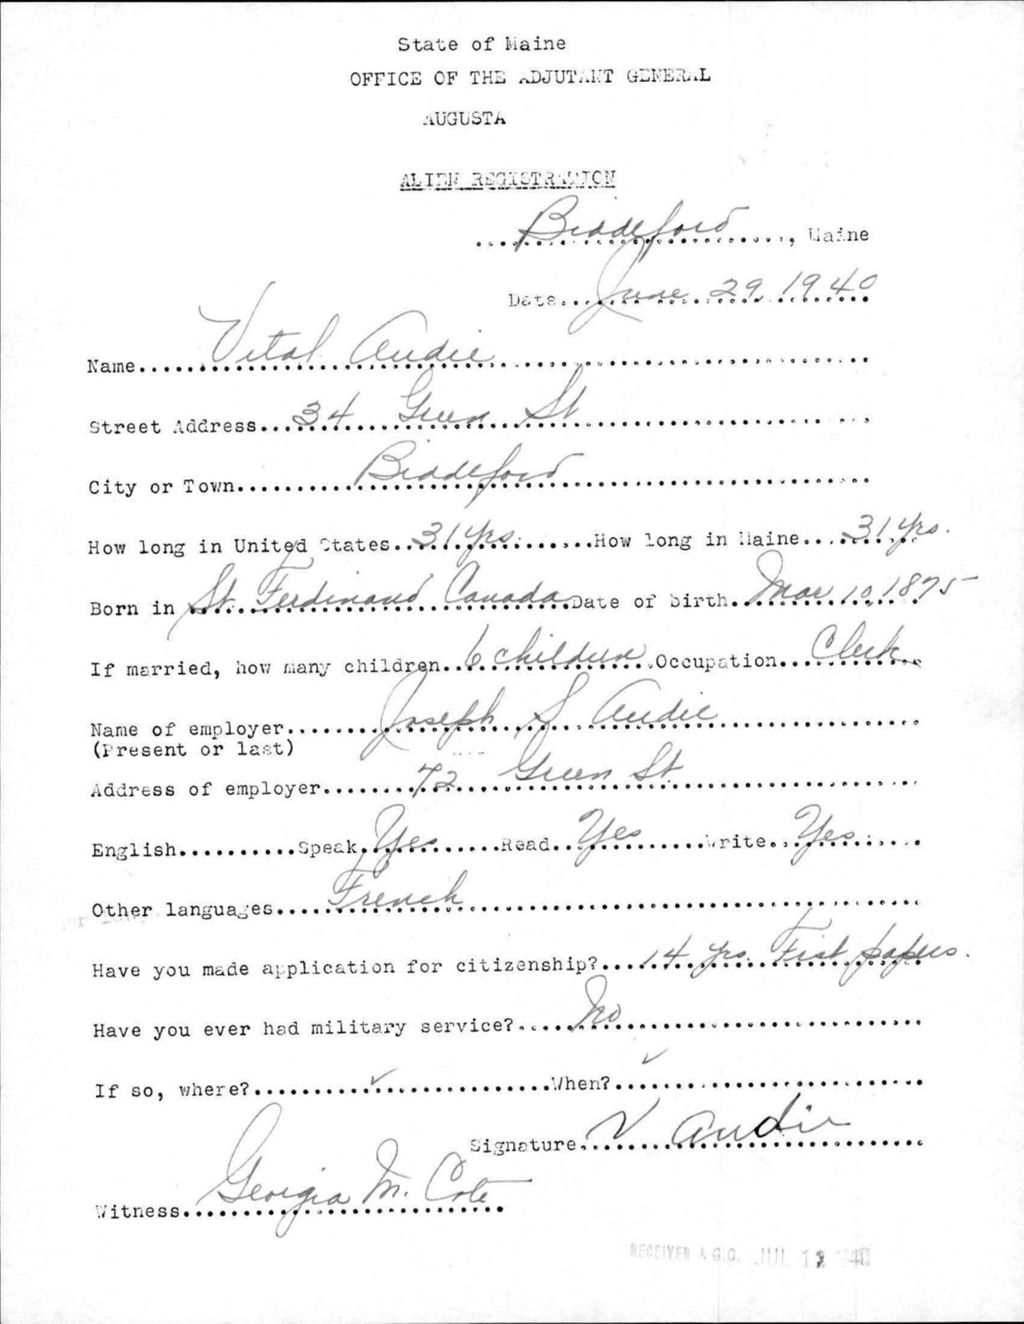 State of Maine
OFFICE OF THE ADJUTANT GENERAL
AUGUSTA
ALIEN REGISTRATION
Biddeford, Maine
Date June 29, 1940
Name Vital Audie
Street Address 34 Green St
City or Town Biddeford
How long in United States 31 yrs. How long in Maine 31 yrs.
Born in St. Ferdinand Canada Date of birth Mar 10, 1875
If married, how many children 6 children Occupation Clerk
Name of employer Joseph S Audie
(Present or last)
Address of employer 72 Green St
English Speak Yes Read Yes Write Yes
Other languages French
Have you made application for citizenship? 14 yrs. First papers.
Have you ever had military service? No
If so, where? ✓ When? ✓
Signature V Audie
Witness Georgia M. Cote
RECEIVED A.G.O. JUL 12 1940